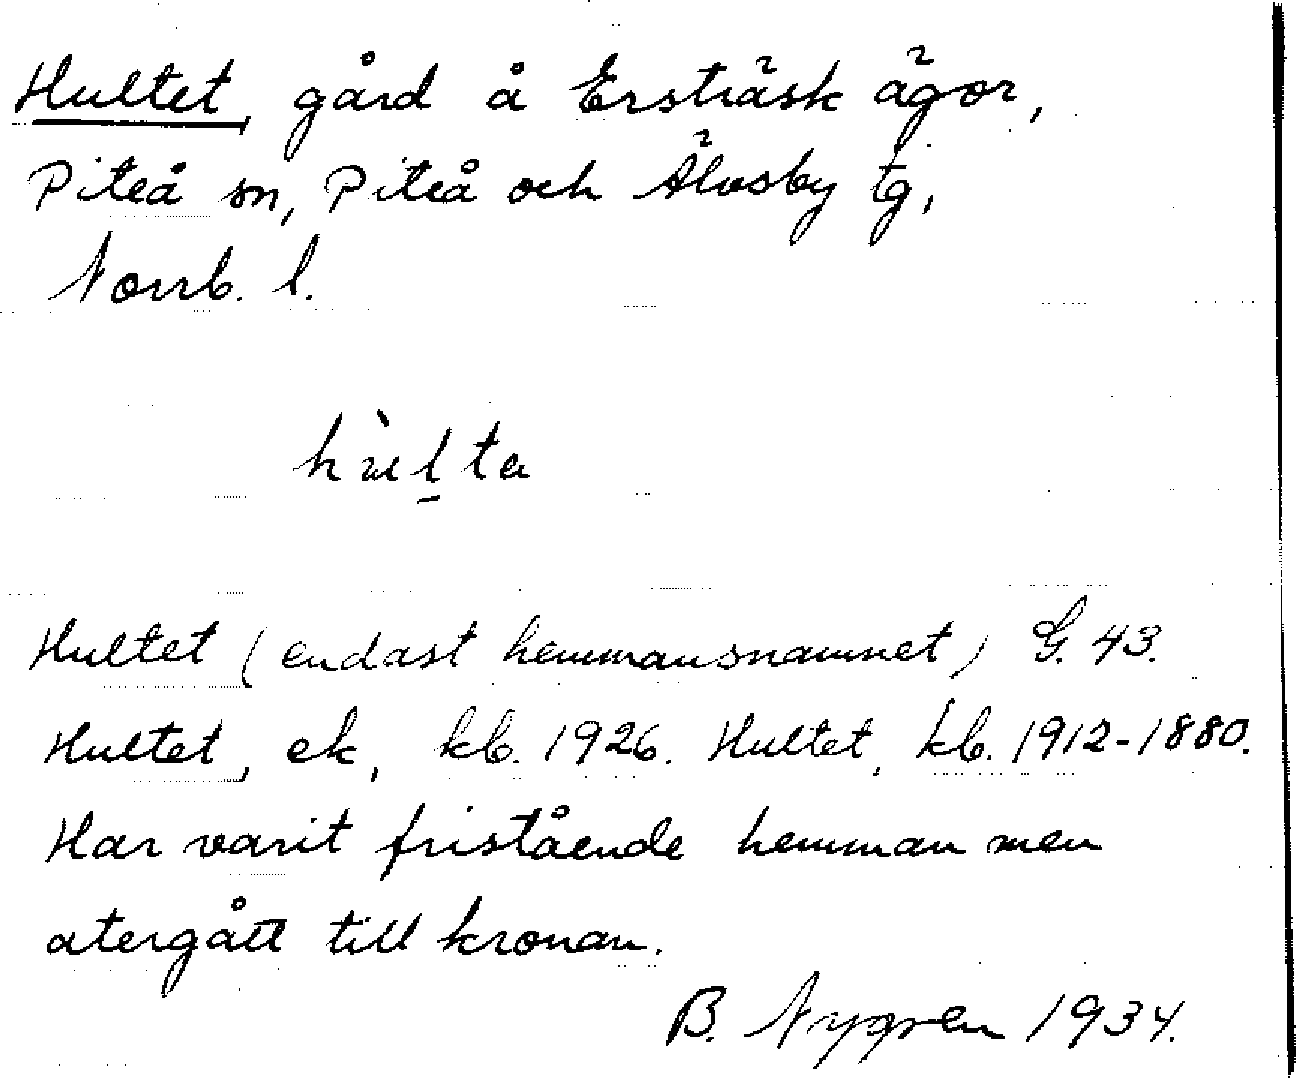 Hultet, gård å Ersträsk ägor,
Piteå sn, Piteå och Älvsby tg,
Norrb. l.
hùl̠ta
Hultet (endast hemmansnamnet) G. 43.
Hultet, ek, kb. 1926. Hultet, kb. 1912-1880.
Har varit fristående hemman men
atergått till kronan.
B. Nygren 1934.